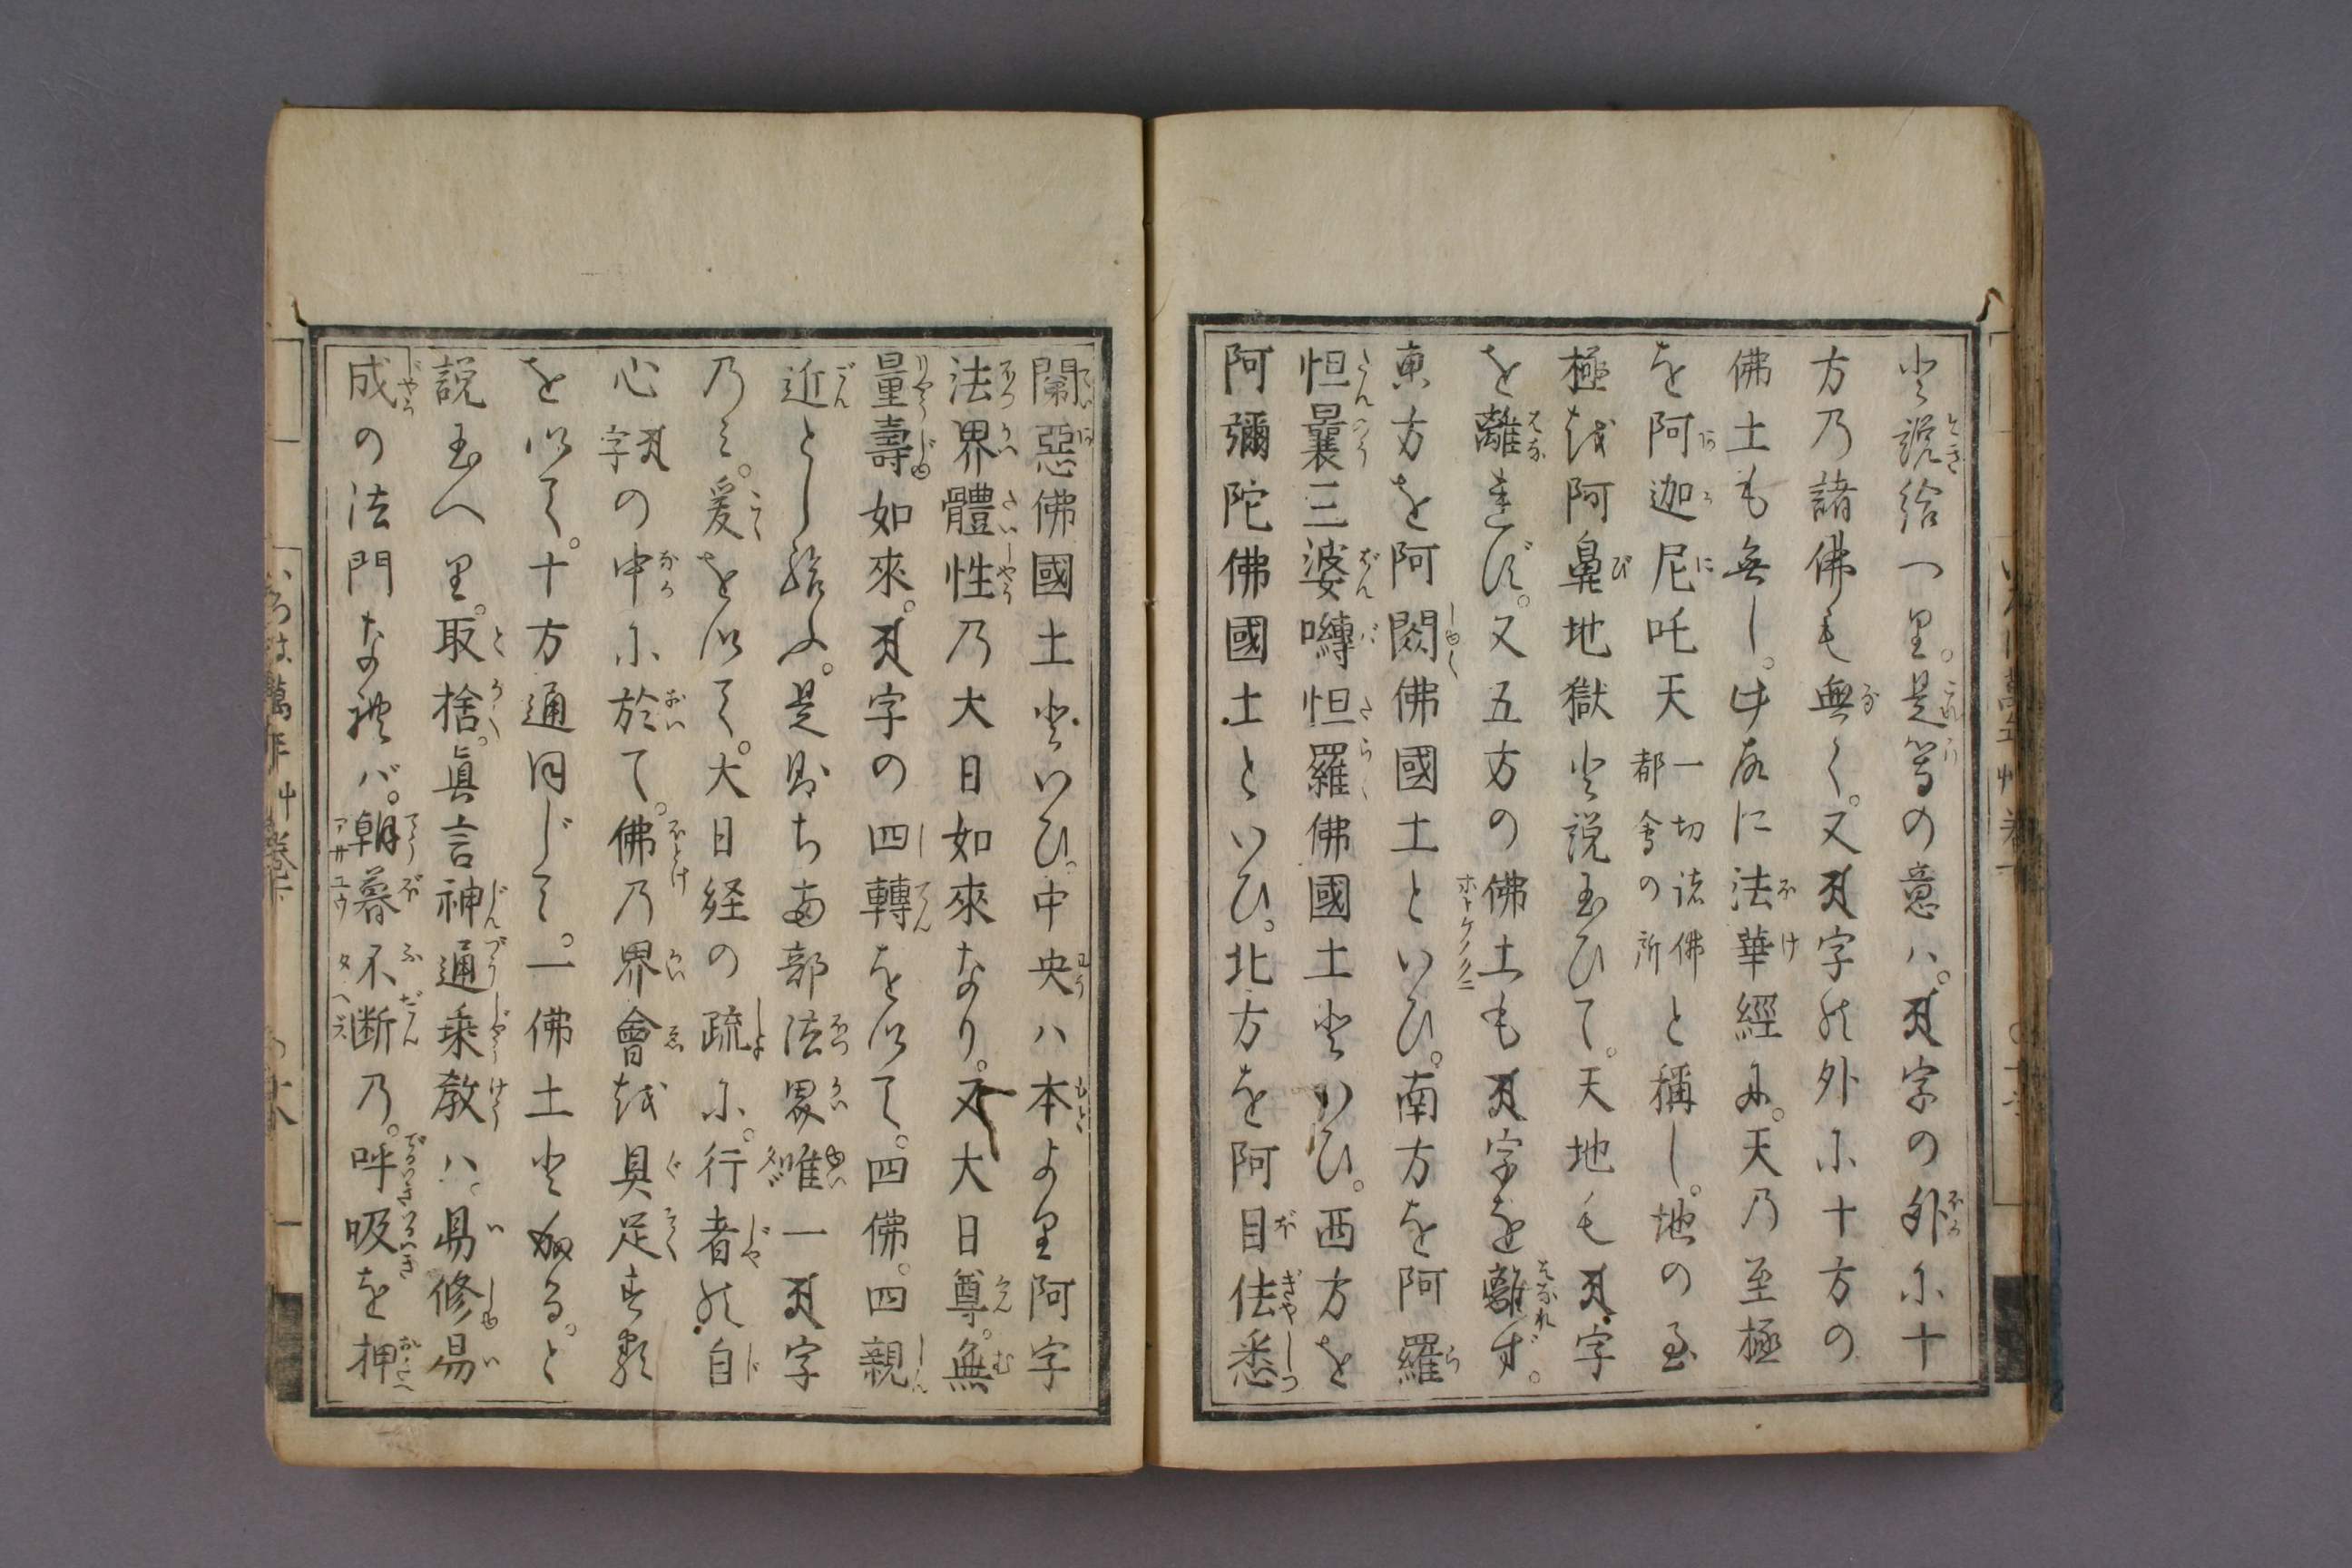 と説給へり。是等の意ハ。𑖀字の外に十
方乃諸佛も無く。又𑖀字の外に十方の
佛土も無し。此故に法華經に。天乃至極
を阿迦尼吒天一切諸佛都會の所と稱し。地の至
極を阿鼻地獄と説玉ひて。天地も𑖀字
を離れず。又五方の佛土も𑖀字を離れず。
東方を阿閦佛國土といひ。南方を阿羅
怛曩三婆囀怛羅佛國土といひ。西方を
阿彌陀佛國土といひ。北方を阿目佉悉
閳惡佛國土といひ。中央ハ本より阿字
法界體性乃大日如來なり。又大日尊。無
量壽如來。𑖀字の四轉を以て。四佛。四親
近とし給ふ。是則ち両部法界唯一𑖀字
乃ミ。爰を以て。大日経の疏に。行者の自
心𑖀字の中に於て。佛乃界會を具足す類
を以て。十方通同じて。一佛土と成る。と
説玉へり。取捨。眞言神通乗教ハ。易修易
成の法門なれバ。朝暮不断乃。呼吸を押